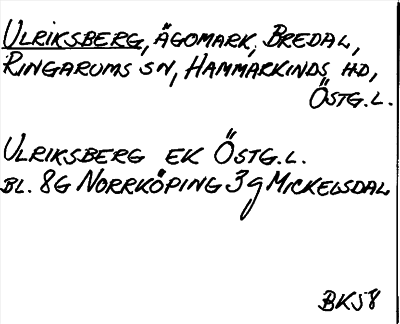 ULRIKSBERG, ÄGOMARK, BREDAL,
RINGARUMS SN, HAMMARKINDS HD,
ÖSTG.L.
ULRIKSBERG EK ÖSTG.L.
BL. 8G NORRKÖPING 3g MICKELSDAL
BK58